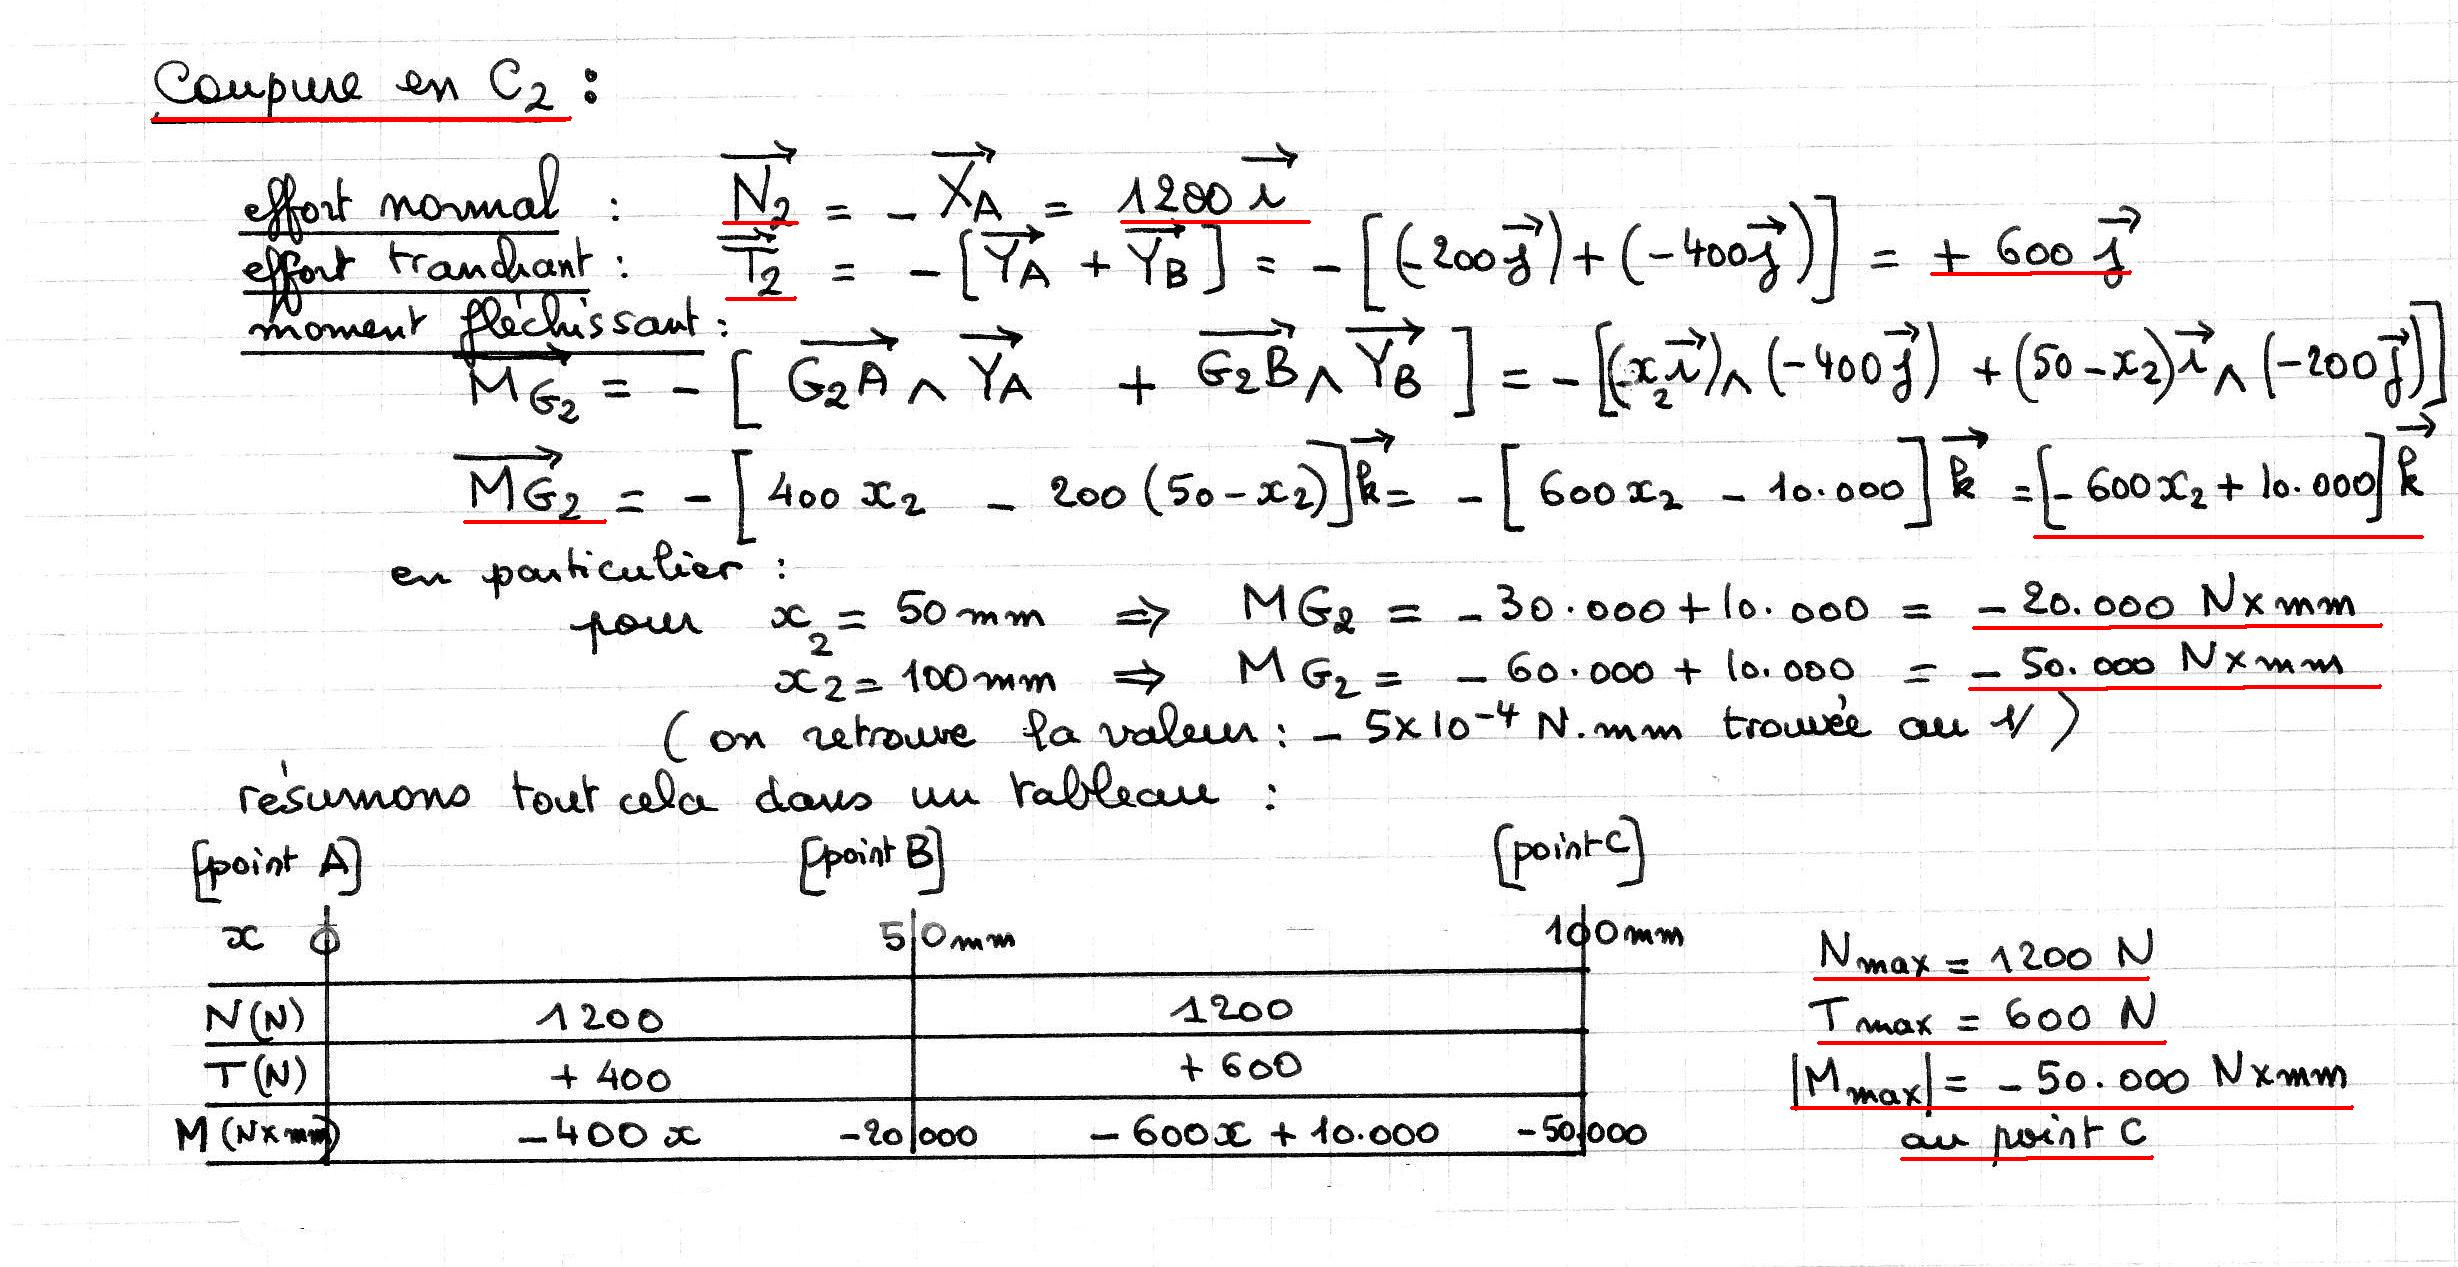 Coupure en C₂ :
effort normal : N₂⃗ = - X_A⃗ = 1200 i⃗
effort tranchant : T₂⃗ = - [Y_A⃗ + Y_B⃗] = - [(-200 j⃗) + (-400 j⃗)] = + 600 j⃗
moment fléchissant :
MG₂⃗ = - [ G₂A⃗ ∧ Y_A⃗ + G₂B⃗ ∧ Y_B⃗ ] = - [(-x₂ i⃗) ∧ (-400 j⃗) + (50 - x₂) i⃗ ∧ (-200 j⃗)]
MG₂⃗ = - [ 400 x₂ - 200 (50 - x₂)] k⃗ = - [ 600 x₂ - 10.000 ] k⃗ = [- 600 x₂ + 10.000] k⃗
en particulier :
pour x₂ = 50 mm ⇒ MG₂ = - 30.000 + 10.000 = - 20.000 N×mm
x₂ = 100 mm ⇒ MG₂ = - 60.000 + 10.000 = - 50.000 N×mm
( on retrouve la valeur : - 5×10⁻⁴ N.mm trouvée au 1/ )
résumons tout cela dans un tableau :
[point A] [point B] [point C]
x 0 50mm 100mm
N(N) 1200 1200
T(N) + 400 + 600
M(N×mm) -400 x -20.000 -600x + 10.000 -50.000
Nmax = 1200 N
Tmax = 600 N
|Mmax| = - 50.000 N×mm
au point C